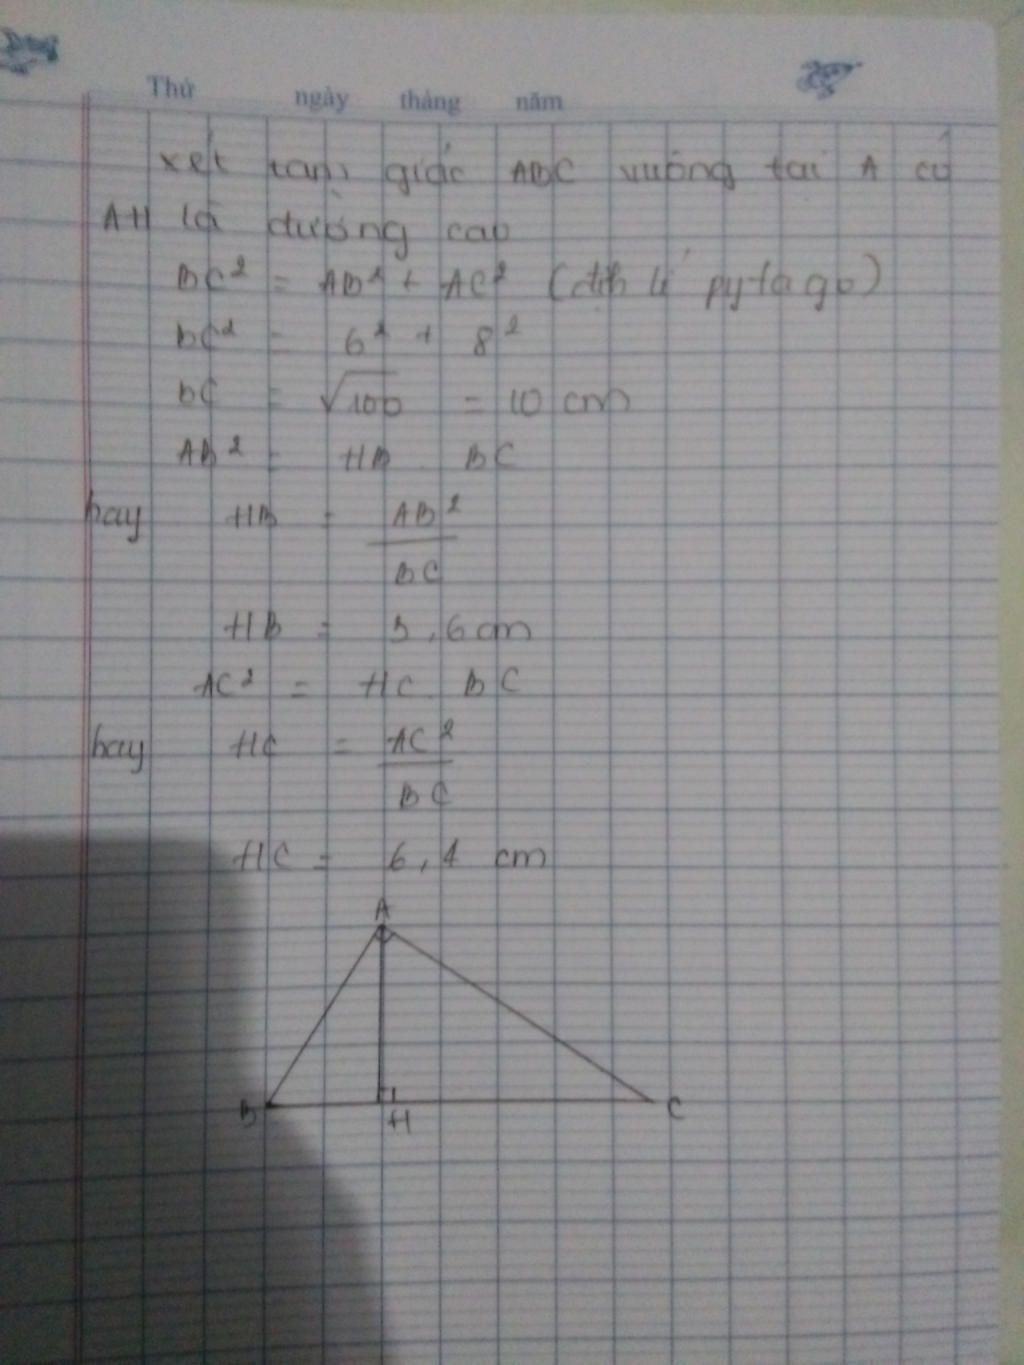 Thứ ngày tháng năm
xét tam giác ABC vuông tại A có
AH là đường cao
BC² = AB² + AC² (định lí pytago)
BC² = 6² + 8²
BC = √100 = 10 cm
AB² = HB . BC
hay HB = AB²
BC
HB = 3,6 cm
AC² = HC . BC
hay HC = AC²
BC
HC = 6,4 cm
A
B H C